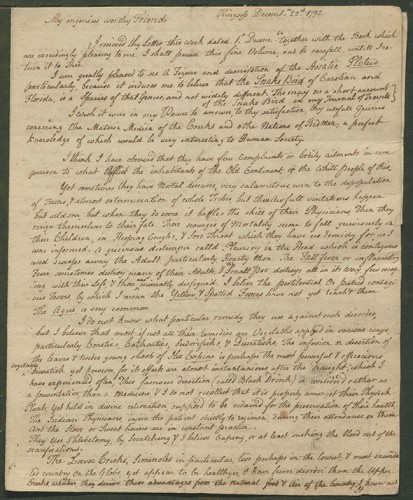 My ingenious worthy Friend Kingsess Decemb. 29th 1792.
I received thy letter this week dated 1st Decem. together with the Book which
are exceedingly pleasing to me. I shall peruse this fine Volume, and be carefull untill I re-
turn it to Thee.
I am greatly pleased to see a Figure and description of the Asiatic Plotus
particularly because it induces me to believe that the Snake Bird of Carolina and
Florida, is a Species of that Genus, and not widely different. Thee may see a short account
of the Snake Bird in my Journal of Travels
I wish it was in my Power to answer to thy satisfaction, thy usefull Queries
concerning the Materia Medica of the Creeks and other Nations of Redmen, a perfect
knowledge of which would be very interesting to Human Society.
I think I have observed that they have few Complaints or bodily ailments in com-
parison to what afflict the inhabitants of the Old Continent & of the White People of this.
Yet sometimes they have Mortal diseases, very calamitous even to the depopulation
of Towns, & almost extermination of whole Tribes, but these dreadfull visitations happen
but seldom, but when they do come it baffles the skill of their Physicians. Then they
resign themselves to their fate. Two sources of Mortality seem to fall grievously on
their Children, viz. Hooping Cough, & Sore Throat which they have no remedy for, as I
was informed. A grievous distemper called Pleurisy in the Head which is contagious
used sweeps away the Adult particularly Twenty the Fall fever or inflamatory
Fever sometimes destroy many of their Adults & Small Pox destroys all in its way few escap
ing with their Life & those miserably disfigured. I believe the pestilential or putrid contagi
ous Fevers, by which I mean the Yellow & Spotted Fevers have not yet reach'd them.
The Ague is very common
I do not know what particular remedy they use against each disorder,
but I believe that most if not all their Remedies are Vegetable applied in various ways,
particularly Emetics, Cathartics, Sudorifics, & Diuretics. The infusion or decoction of
the leaves & tender young shoots of Ilex Casine is perhaps the most powerfull & efficacious
Diuretick yet known, for its effects are almost instantaneous after the draught, which I
have experienced often, This famous decoction (called Black Drink) is considered rather as
a preventative than a medicine, & I do not recollect that it is properly amongst their Physick
Plants yet held in divine veneration supposed to be ordained for the preservation of their health.
The Indian Physicians injoin the patient strictly to regimen during their attendance on them
And the Stove or Sweat houses are in constant practice
They use Phlebotomy by Scratching & I believe Cupping, or at least sucking the blood out of the
scarifications
The Lower Creeks, Siminoles in particular, live perhaps in the lowest & most inunda
ted country on the Globe, yet appear to be healthyer & have fewer disorders than the Upper
Creeks whether they derive these advantages from the natural food & air of the Country, I know not